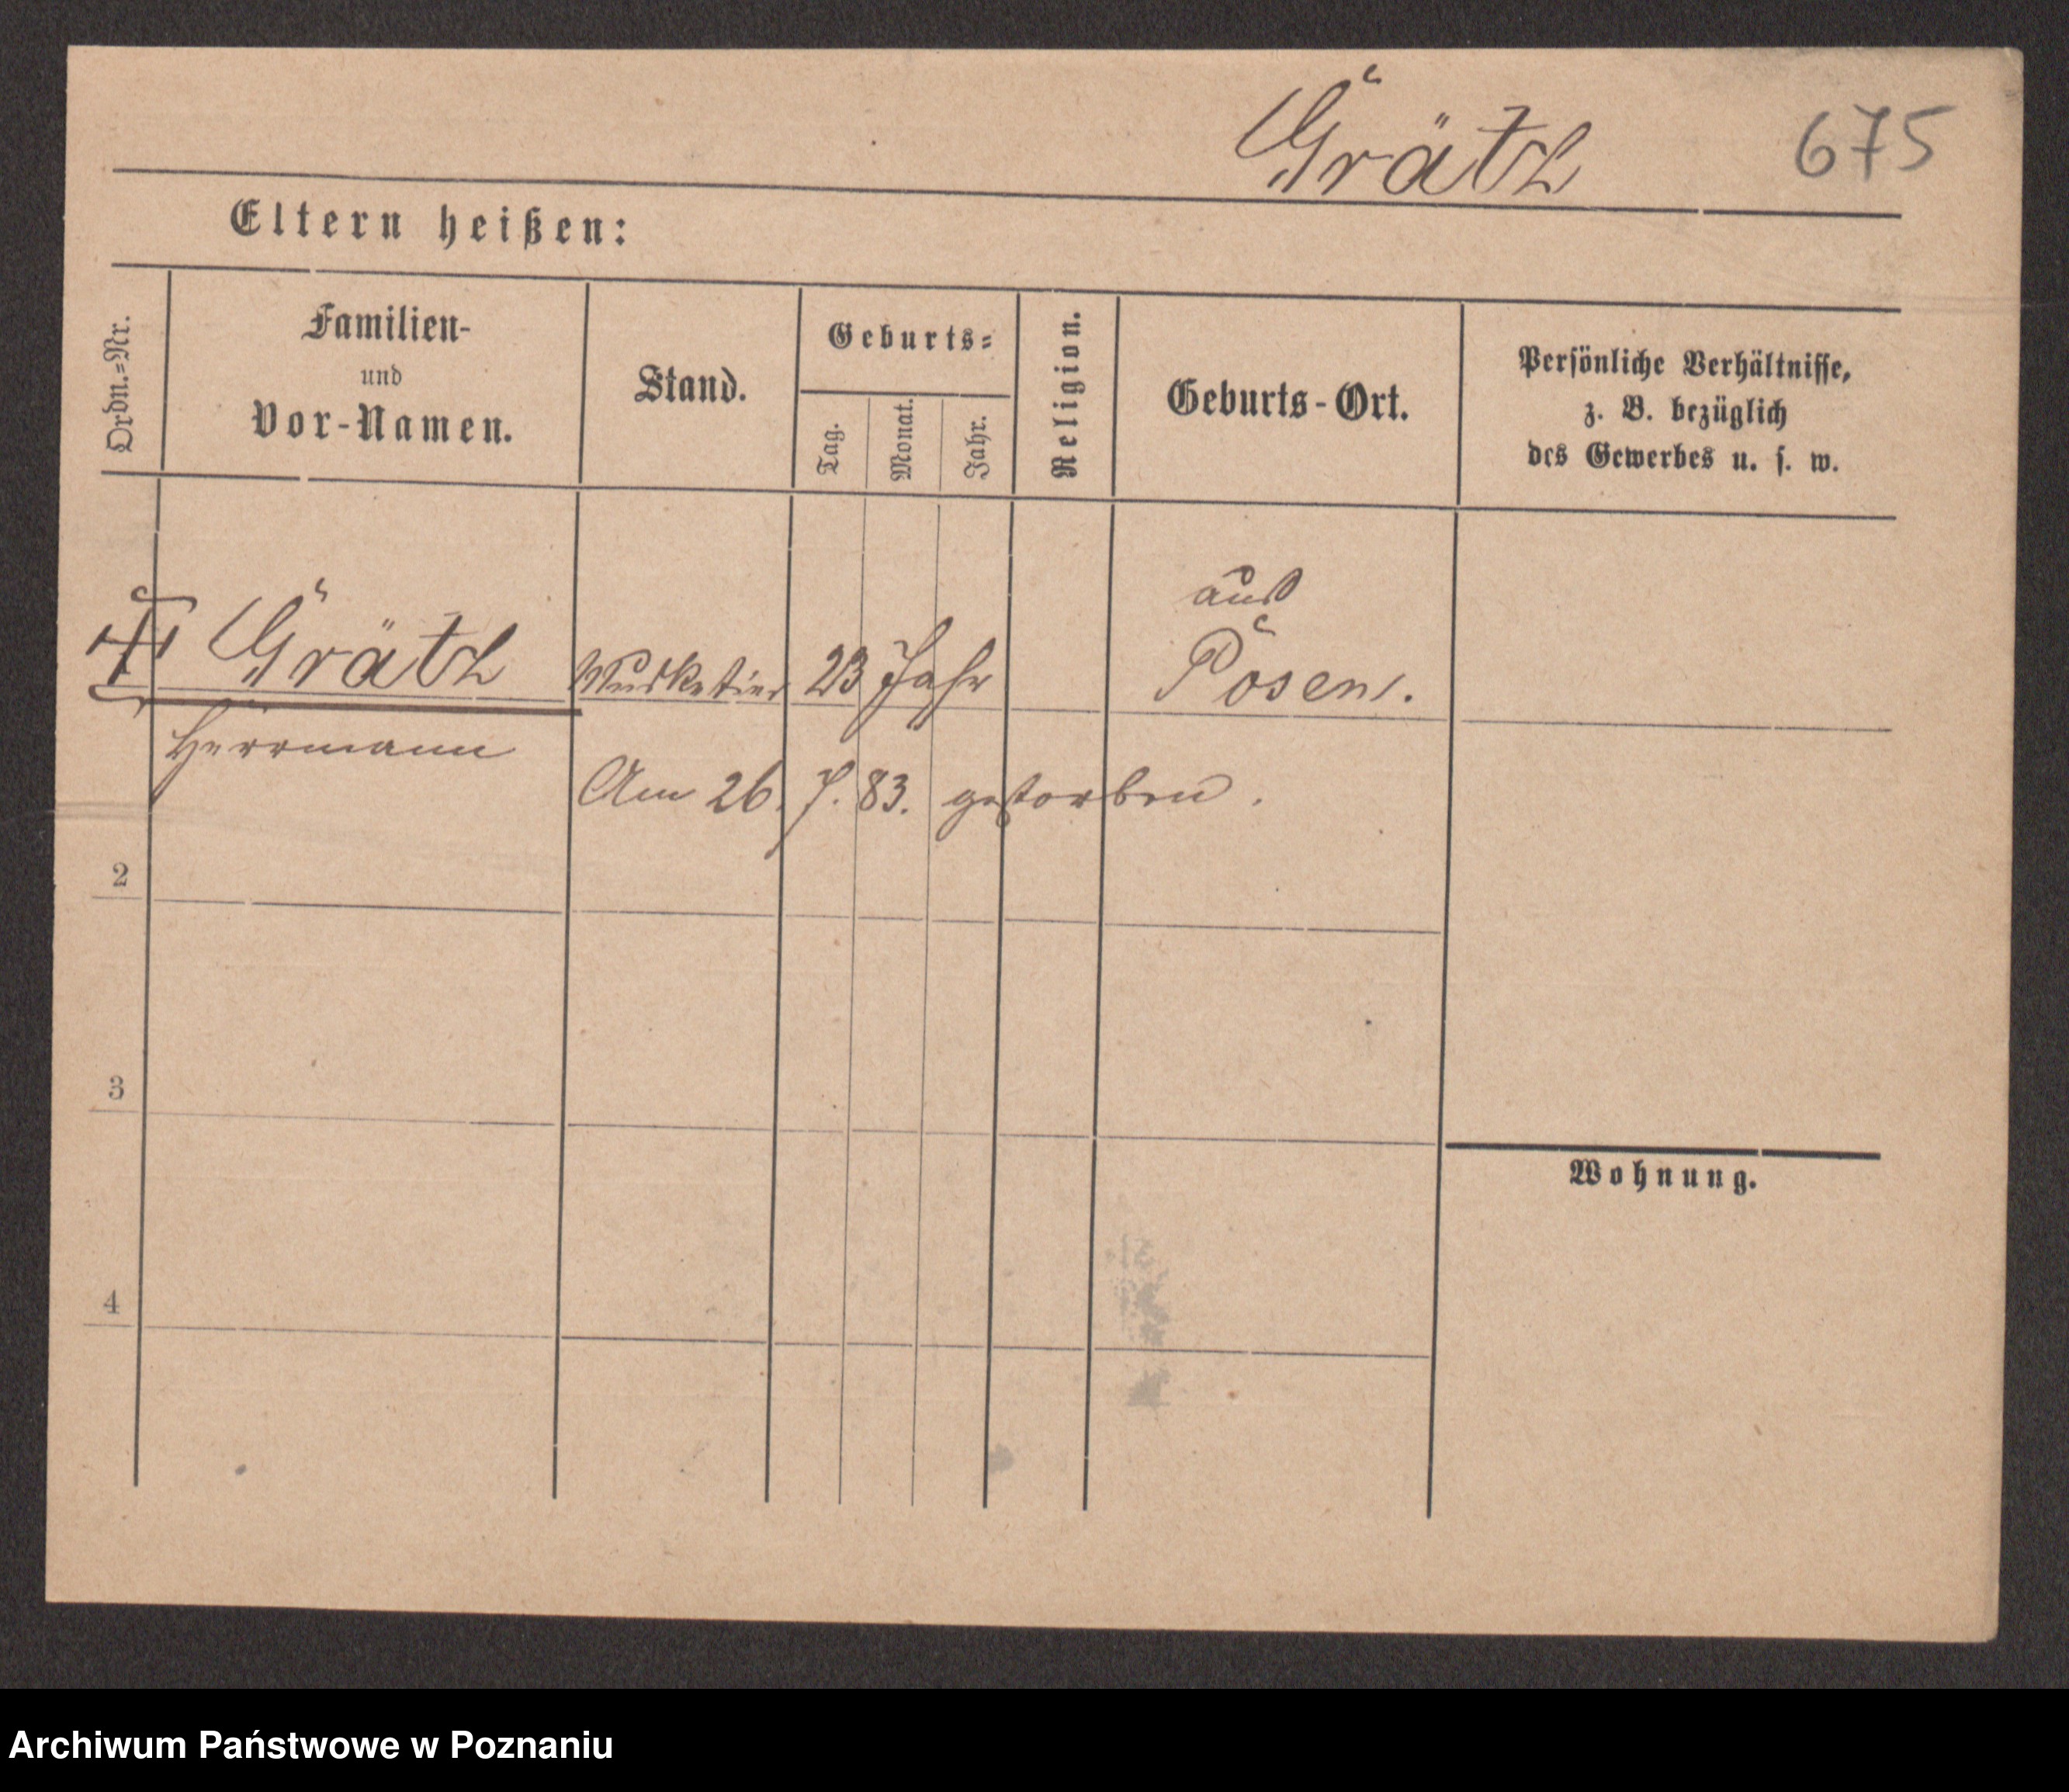 Grätz 675
Eltern heißen:
Ordn.=Nr.
Familien-
und
Vor-Namen.
Stand.
Geburts=
Tag.
Monat.
Jahr.
Religion.
Geburts-Ort.
Persönliche Verhältnisse,
z. B. bezüglich
des Gewerbes u. s. w.
aus
Grätz Musketier 23 Jahr Posen.
Herrmann
Am 26. 7. 83. gestorben.
2
3
Wohnung.
4
Archiwum Państwowe w Poznaniu